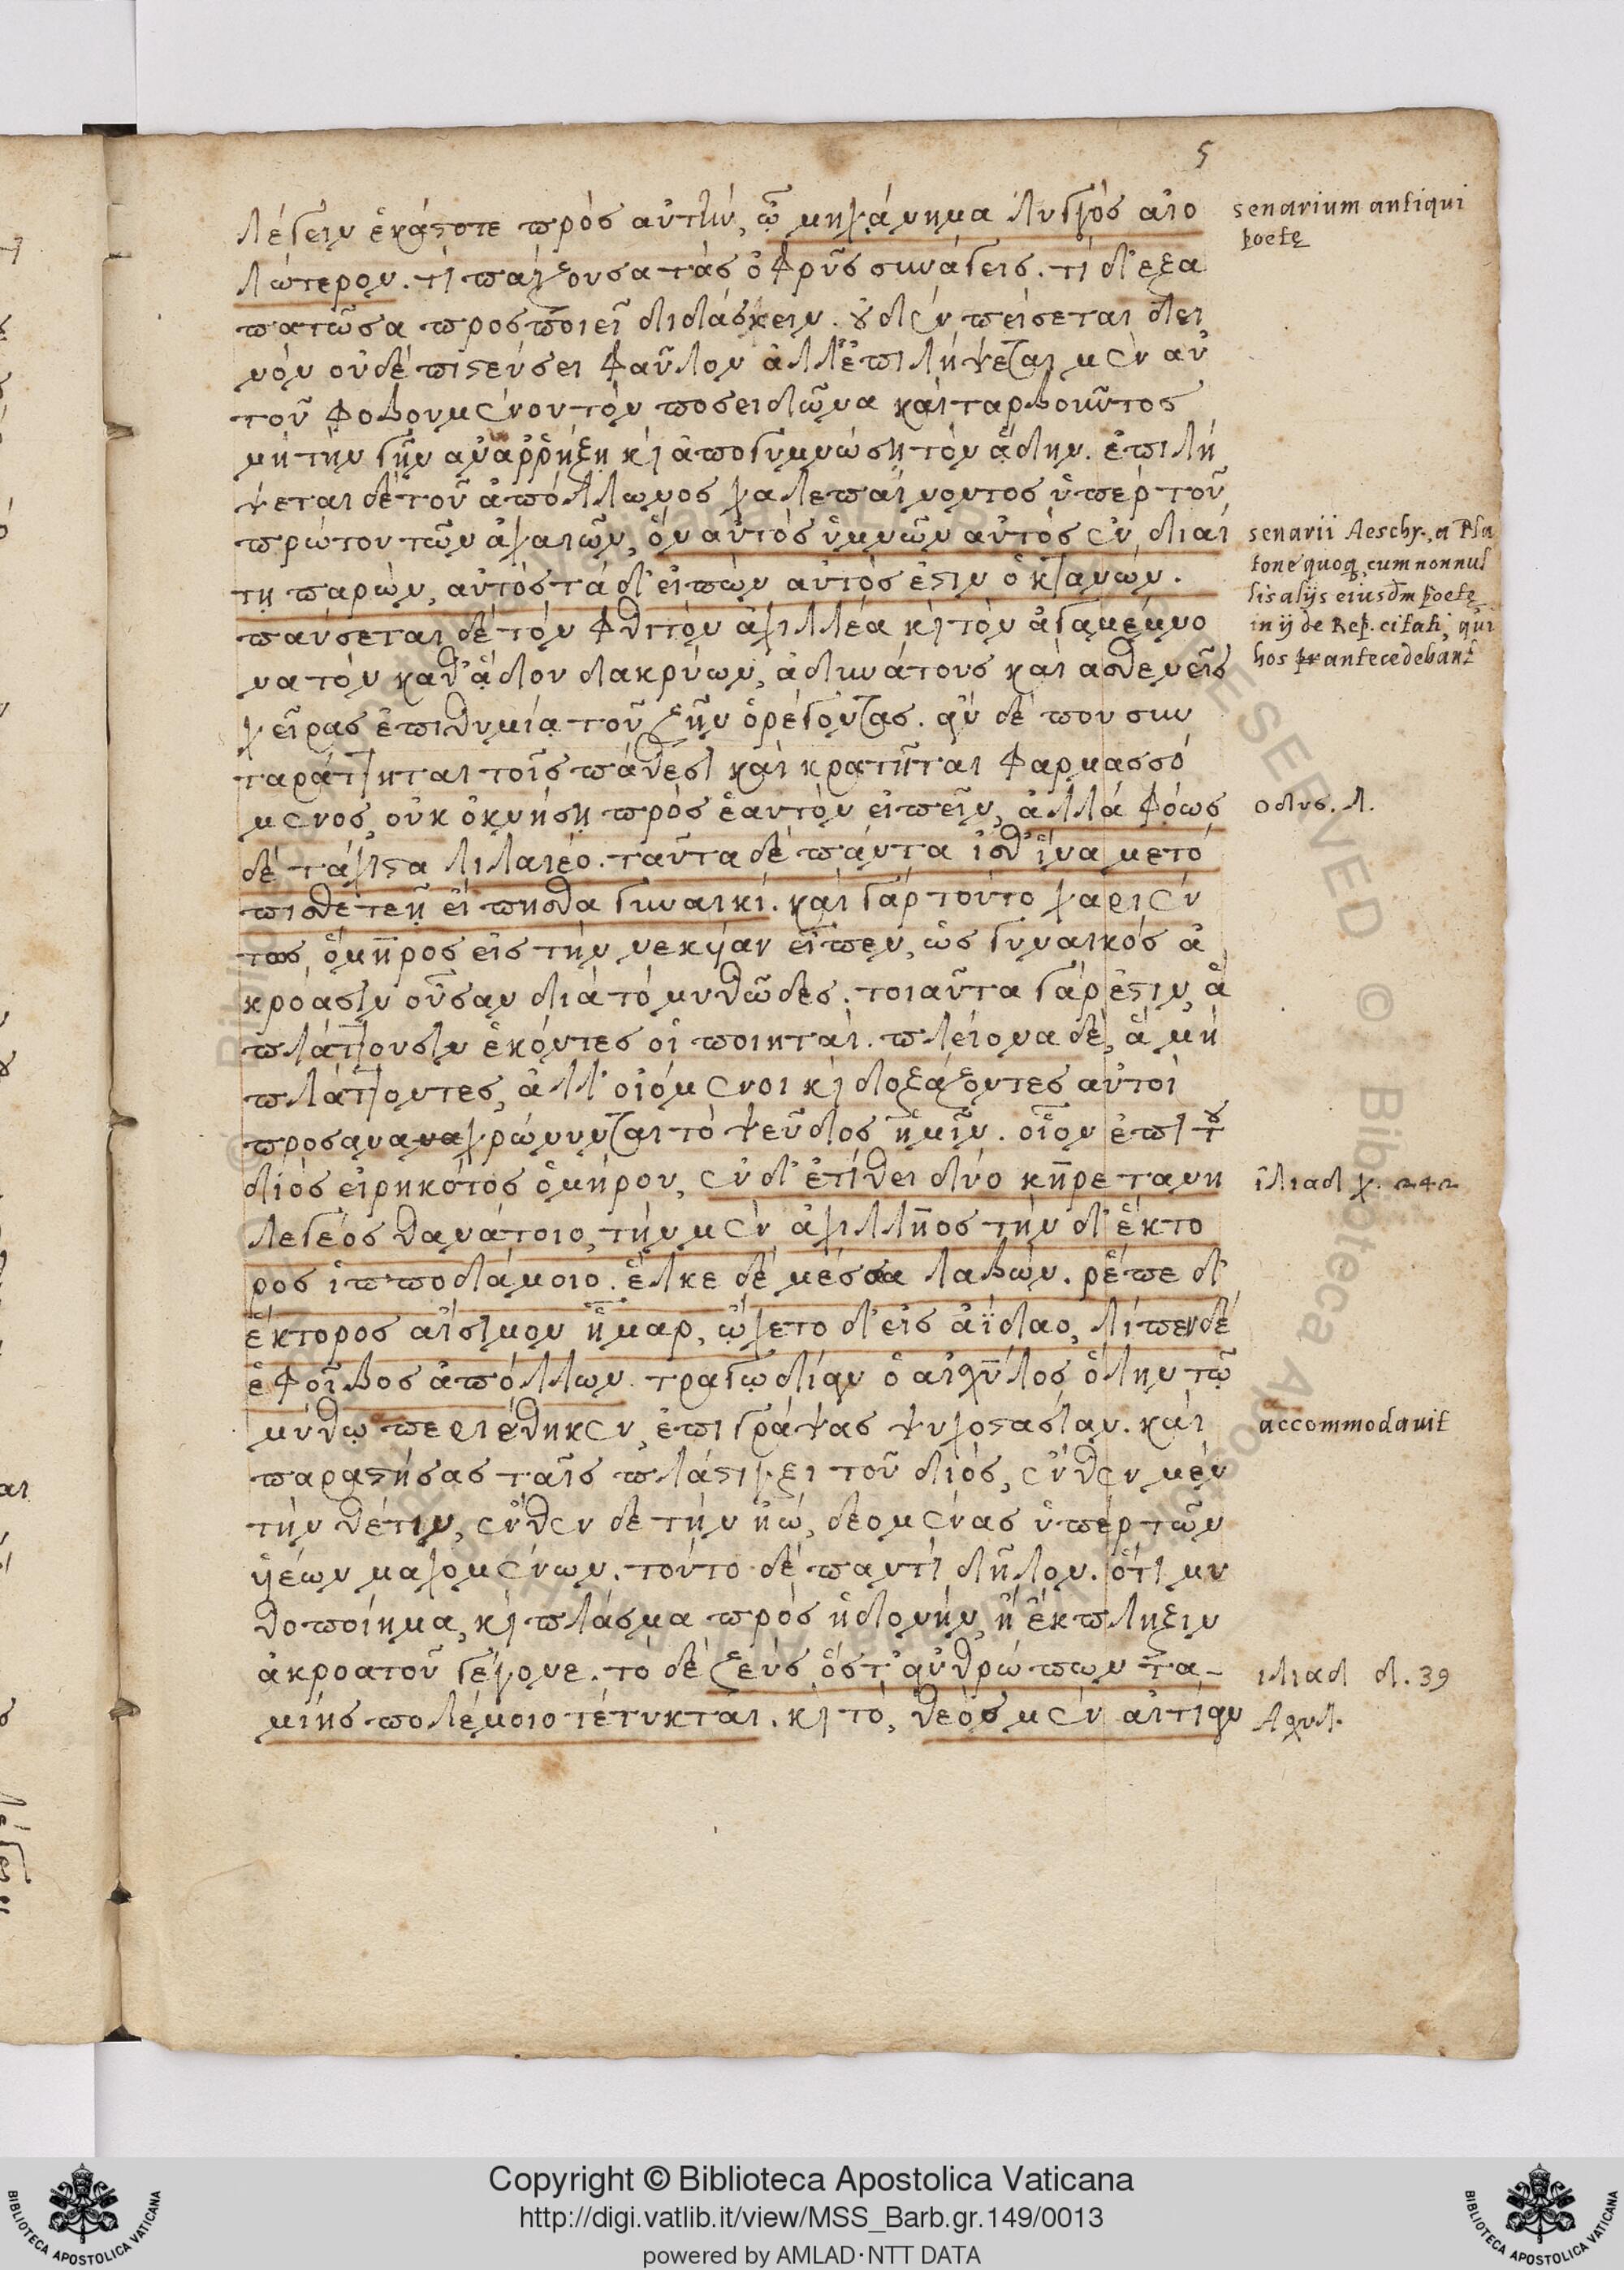 5
λέγειν ἑκάστοτε πρὸς αὐτὴν, ὦ μηχάνημα λυγρὸς αἰο
λώτερον. τί παίζουσα τὰς ὀφρῦς συνάγεις. τί δ' εξα
πατῶσα προσποιεῖ διδάσκειν. οὐδὲν πείσεται δει
νὸν οὐδὲ πιστεύσει φαῦλον ἀλλ' ἐπιλήψεται μὲν αὑ
τοῦ φοβουμένου τὸν ποσειδῶνα καὶ ταρβοῦντος
μὴ τὴν γῆν ἀναρρήξη καὶ ἀπογυμνώση τὸν ᾅδην. ἐπιλή
ψεται δὲ τοῦ ἀπόλλωνος χαλεπαίνοντος ὑπὲρ τοῦ
πρώτου τῶν ἀχαιῶν, ὃν αὐτὸς ὑμνῶν αὐτὸς ἐν διαί
τη παρὼν, αὐτὸς τά δ' εἰπὼν αὐτός ἐστιν ὁ κτανων.
παύσεται δὲ τὸν φθιτὸν ἀχιλλέα καὶ τὸν ἀγαμέμνο
να τὸν καθ' ᾅδου δακρύων, ἀδυνάτους καὶ ασθενεῖς
χεῖρας ἐπιθυμία τοῦ ζῆν ὀρέγοντας. ἂν δέ που συν
ταράττηται τοῖς πάθεσι καὶ κρατῆται φαρμασσό
μενος, οὐκ ὀκνήση πρὸς ἑαυτὸν εἰπεῖν, ἀλλὰ φόως
δὲ τάχιστα λιλαίεο. ταῦτα δὲ πάντα ἴσθ' ἵνα μετό
πισθε τεῇ εἴπησθα γυναικί. καὶ γὰρ τοῦτο χαριέν
τως ὅμηρος εἰς τὴν νεκυίαν εἶπεν, ὡς γυναικὸς ἀ
κρόασιν οὖσαν διὰ τὸ μυθῶδες. τοιαῦτα γάρ ἐστιν, ἃ
πλάττουσιν ἑκόντες οἱ ποιηταί. πλείονα δὲ, ἃ μὴ
πλάττοντες, ἀλλ' οἰόμενοι καὶ δοξάζοντες αὐτοὶ
προσαναχρώννυνται τὸ ψεῦδος ἡμῖν. οἷον ἐπὶ τοῦ
διὸς εἰρηκότος ὁμήρου, ἐν δ' ἐτίθει δύο κῆρε τανη
λεγέος θανάτοιο, τὴν μὲν ἀχιλλῆος τὴν δ' ἕκτο
ρος ἱπποδάμοιο. ἕλκε δὲ μέσσα λαβών. ῥέπε δ'
ἕκτορος αἴσιμον ἦμαρ, ᾤχετο δ' εἰς ἀΐδαο, λίπεν δέ
ἑ φοῖβος ἀπόλλων. τραγῳδίαν ὁ αἰσχύλος ὅλην τῷ
μύθῳ περιέθηκεν, ἐπιγράψας ψυχοστασίαν. καὶ
παραστήσας ταῖς πλάστιγξι τοῦ διὸς, ἔνθεν μὲν
τὴν θέτιν, ἔνθεν δὲ τὴν ἠώ, δεομένας ὑπὲρ τῶν
υἱέων μαχομένων. τοῦτο δὲ παντὶ δῆλον. ὅτι μυ
θοποίημα, καὶ πλάσμα πρὸς ἡδονὴν, ἢ ἔκπληξιν
ἀκροατοῦ γέγονε. τὸ δὲ ζεύς ὅστ' ἀνθρώπων τα-
μίης πολέμοιο τέτυκται. καὶ τὸ, θεὸς μὲν αἰτίαν
senarium antiqui
poetę
senarii Aeschy., a Pla
tone quoq. cum nonnul
lis alijs eiusdm poetę
in ij de Rep. citati, qui
hos antecedebant
οδυς. λ.
ἰλιαδ χ. 242
accommodavit
ιλιαδ δ. 39
Αἰσχυλ.
Copyright © Biblioteca Apostolica Vaticana
http://digi.vatlib.it/view/MSS_Barb.gr.149/0013
powered by AMLAD·NTT DATA
BIBLIOTECA APOSTOLICA VATICANA
BIBLIOTECA APOSTOLICA VATICANA